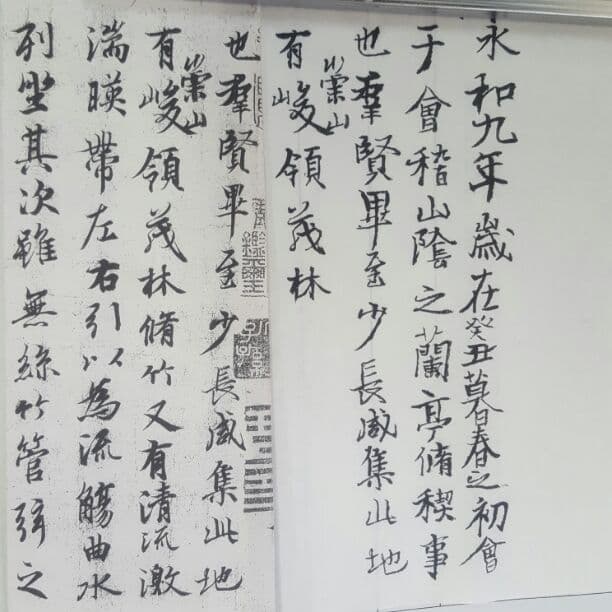 永和九年歲在癸丑暮春之初會
于會稽山陰之蘭亭脩稧事
也羣賢畢至少長咸集此地
有崇山峻領茂林
也羣賢畢至少長咸集此地
有崇山峻領茂林脩竹又有清流激
湍暎帶左右引以為流觴曲水
列坐其次雖無絲竹管弦之